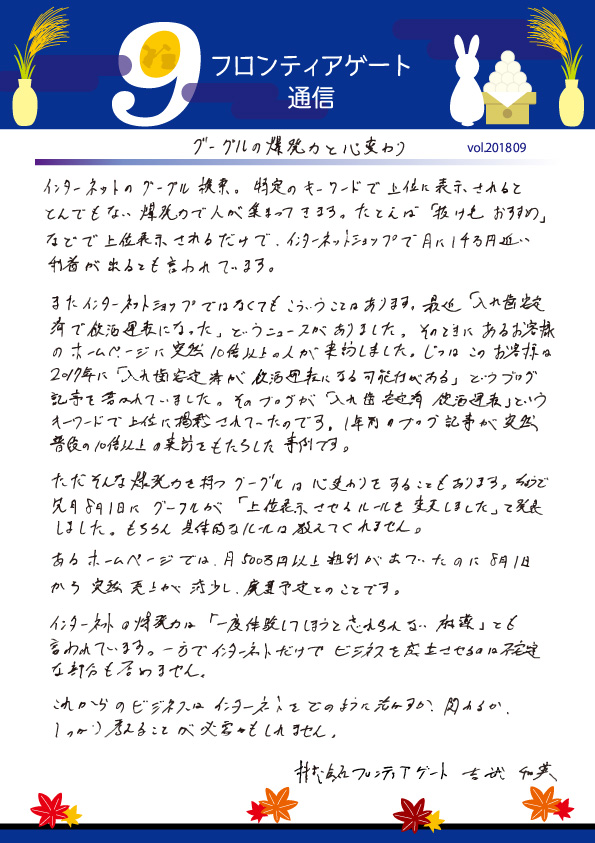 9
フロンティアゲート
通信
グーグルの爆発力と心変わり
vol.201809
インターネットのグーグル検索。特定のキーワードで上位に表示されると
とんでもない爆発力で人が集まってきます。たとえば「抜け毛 おすすめ」
などで上位表示されるだけで、インターネットショップで月に1千万円近い
利益が出るとも言われています。
またインターネットショップではなくてもこういうことはあります。最近「入れ歯安定
剤で飲酒運転になった」というニュースがありました。そのときにあるお客様
のホームページに突然10倍以上の人が来訪しました。じつはこのお客様は
2017年に「入れ歯安定剤が飲酒運転になる可能性がある」というブログ
記事を書かれていました。そのブログが「入れ歯安定剤 飲酒運転」という
キーワードで上位に掲載されていたのです。1年前のブログ記事が突然
普段の10倍以上の来訪をもたらした事例です。
ただそんな爆発力を持つグーグルは心変わりをすることもあります。
先月8月1日にグーグルが「上位表示させるルールを変更しました」と発表
しました。もちろん具体的なルールは教えてくれません。
あるホームページでは、月500万円以上粗利があがっていたのに8月1日
から突然売上が減少し、廃業予定とのことです。
インターネットの爆発力は「一度体験してしまうと忘れられない麻薬」とも
言われています。一方でインターネットだけでビジネスを成立させるのは不安定
な部分も否めません。
これからのビジネスはインターネットをどのように活かすか、関わるか、
しっかり考えることが必要かもしれません。
株式会社フロンティアゲート 吉武 和英